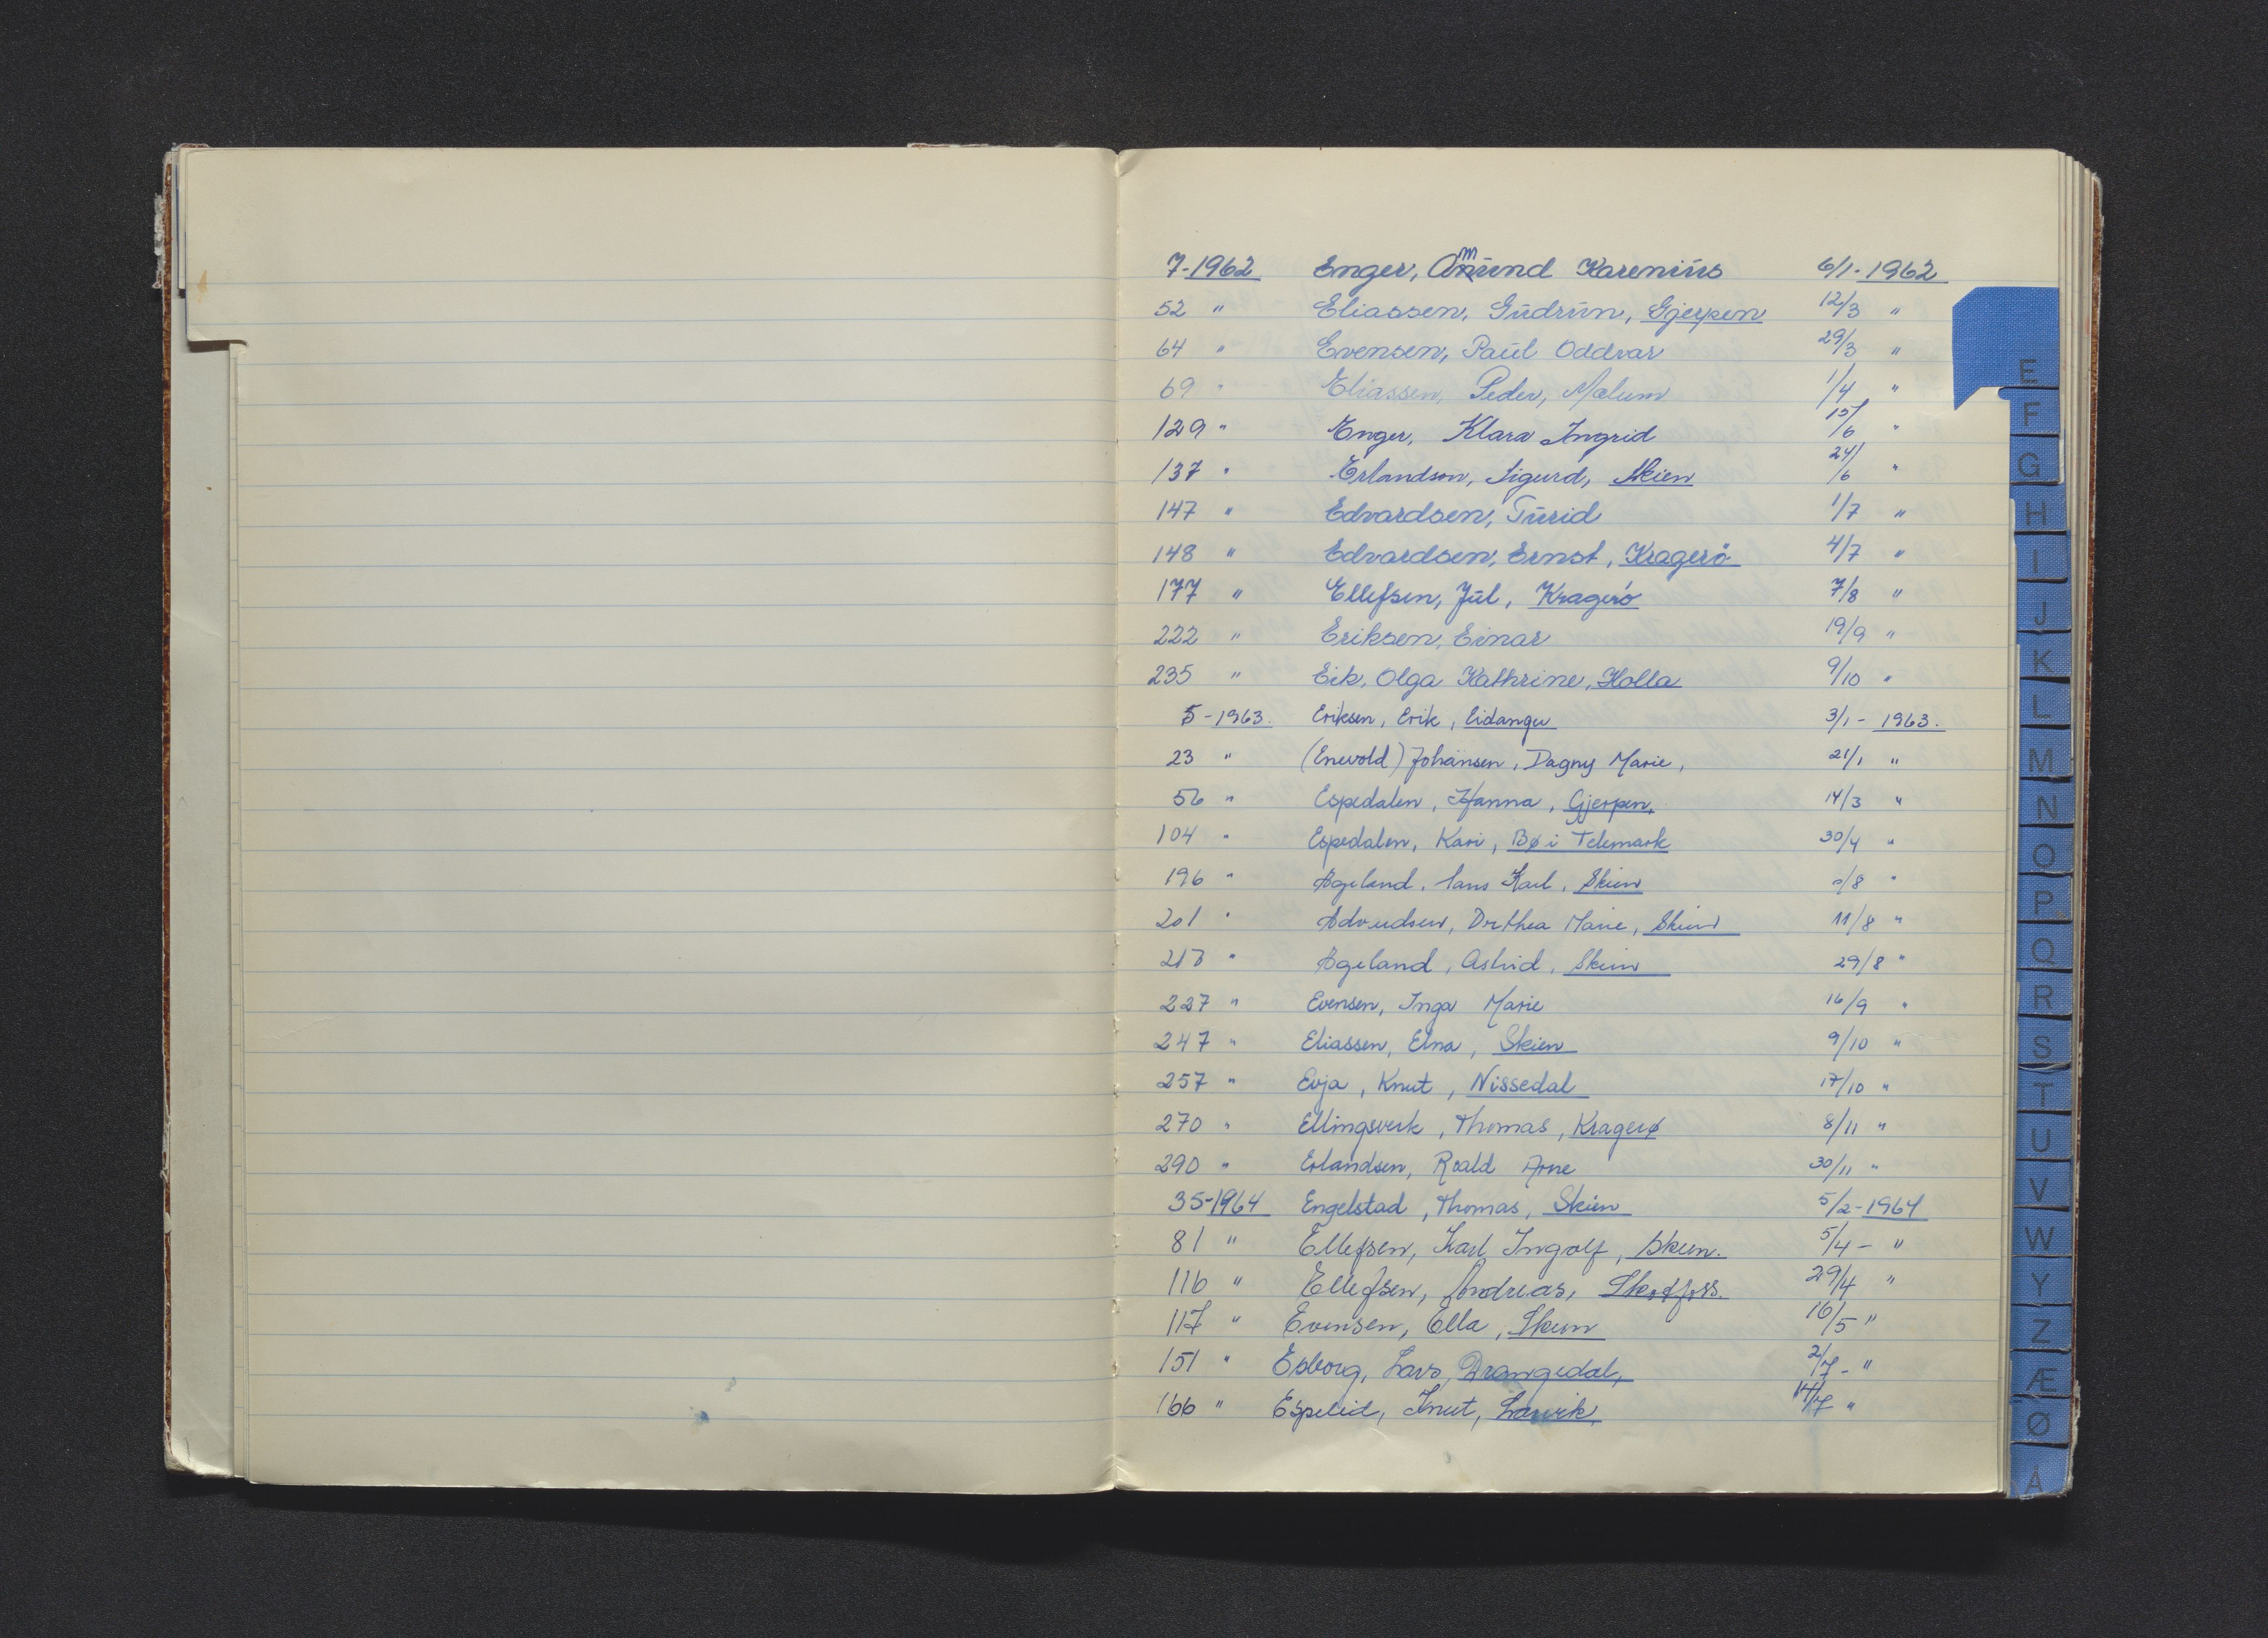 7-1962 Enger, Amund Karenius 6/1-1962
52 " Eliassen, Gudrun, Gjerpen 12/3 "
64 " Evensen, Paul Oddvar 29/3 "
69 " Eliassen, Peder, Mælum 1/4 "
129 " Enger, Klara Ingrid 15/6 "
137 " Erlandson, Sigurd, Skien 24/6 "
147 " Edvardsen, Turid 1/7 "
148 " Edvardsen, Ernst, Kragerö 4/7 "
177 " Ellefsen, Jul, Kragerö 7/8 "
222 " Eriksen, Einar 19/9 "
235 " Eik, Olga Kathrine, Holla 9/10 "
5-1963. Eriksen, Erik, Eidanger 3/1-1963.
23 " (Enevold) Johansen, Dagny Marie, 21/1 "
56 " Espedalen, Hanna, Gjerpen, 14/3 "
104 " Espedalen, Kari, Bø i Telemark 30/4 "
196 " Egeland, Karl, Skien /8 "
201 " Dorthea Marie, Skien 11/8 "
" Egeland, Astrid, Skien 29/8 "
227 " Evensen, Inga Marie 16/9 "
247 " Eliassen, Elna, Skien 9/10 "
257 " Evja, Knut, Nissedal 17/10 "
270 " Ellingsverk, Thomas, Kragerø 8/11 "
290 " Erlandsen, Roald Arne 30/11 "
35-1964 Engelstad, Thomas, Skien 5/2-1964
81 " Ellefsen, Karl Ingolf, Skien. 5/4- "
116 " Ellefsen, Andreas, Skotfoss. 29/4 "
117 " Evensen, Ella, Skien 16/5 "
151 " Esborg, Lars, Drangedal, 2/7- "
166 " Espelid, Knut, Larvik, 14/7 "
E
F
G
H
I
J
K
L
M
N
O
P
Q
R
S
T
U
V
W
Y
Z
Æ
Ø
Å